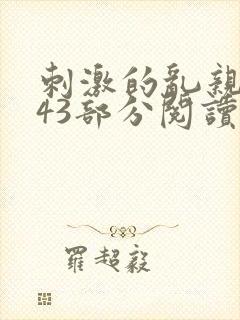 刺激的亂親
43部分閱讀
羅超毅